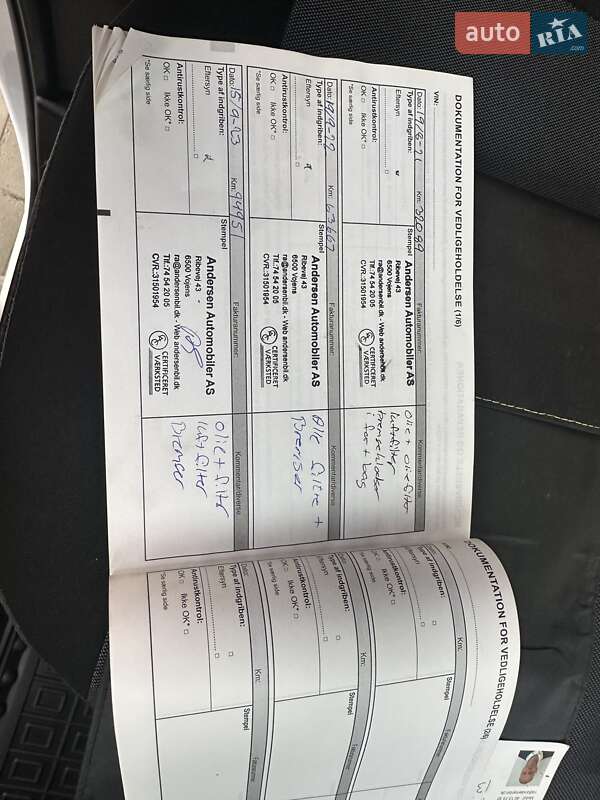 auto RIA .com
DOKUMENTATION FOR VEDLIGEHOLDELSE (1/6)
VIN:
Dato: 19/6-21 Km: 32099 Stempel Fakturanummer: Kommentar/diverse
Type af indgriben:
Eftersyn
Antirustkontrol:
OK □ Ikke OK* □
*Se særlig side
Andersen Automobiler AS
Ribevej 43
6500 Vojens
Tlf.:74 54 20 05
ra@andersenbil.dk - Web andersenbil.dk
CVR.:31501954
CERTIFICERET
VÆRKSTED
Olie + oliefilter
luftfilter
bremseklodser
i for + bag
Dato: 19/9-22 Km: 63667 Stempel Fakturanummer: Kommentar/diverse
Type af indgriben:
Eftersyn
Antirustkontrol:
OK □ Ikke OK* □
*Se særlig side
Andersen Automobiler AS
Ribevej 43
6500 Vojens
Tlf.:74 54 20 05
ra@andersenbil.dk - Web andersenbil.dk
CVR.:31501954
CERTIFICERET
VÆRKSTED
Alle filtre +
Bremser
Dato: 15/9-23 Km: 94951 Stempel Fakturanummer: Kommentar/diverse
Type af indgriben:
Eftersyn
Antirustkontrol:
OK □ Ikke OK* □
*Se særlig side
Andersen Automobiler AS
Ribevej 43
6500 Vojens
Tlf.:74 54 20 05
ra@andersenbil.dk - Web andersenbil.dk
CVR.:31501954
CERTIFICERET
VÆRKSTED
Olie + filter
luft filter
DOKUMENTATION FOR VEDLIGEHOLDELSE (2/6)
Km: Stempel
Type af indgriben:
Eftersyn
Antirustkontrol:
OK □ Ikke OK* □
*Se særlig side
Dato: Km: Stempel Fakturanummer
Type af indgriben:
Eftersyn
Antirustkontrol:
OK □ Ikke OK* □
*Se særlig side
Dato: Km: Stempel Fakturanummer
Type af indgriben:
Eftersyn
Antirustkontrol:
OK □ Ikke OK* □
*Se særlig side